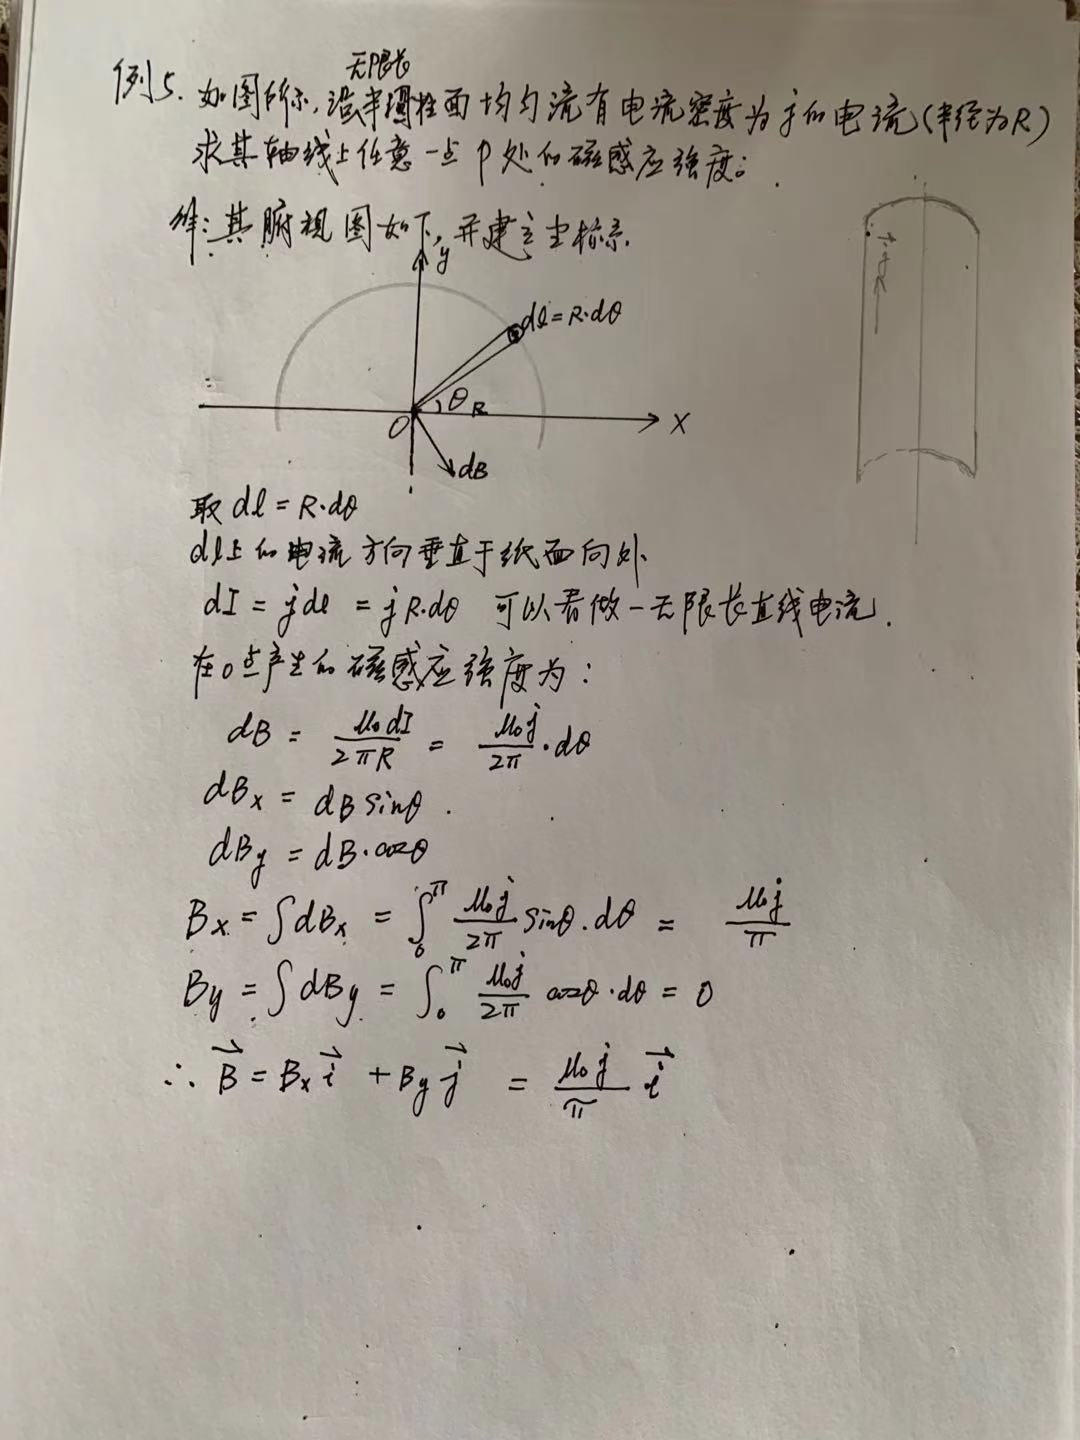 无限长
例5. 如图所示,设半圆柱面均匀流有电流密度为j的电流(半径为R)
求其轴线上任意一点P处的磁感应强度。
解:其俯视图如下,并建立坐标系.
y
dl=R·dθ
θ
R
O
X
dB
取dl=R·dθ
dl上的电流方向垂直于纸面向外.
dI = jdl = jR·dθ 可以看做一无限长直线电流.
在O点产生的磁感应强度为:
dB = μ₀dI/2πR = μ₀j/2π·dθ
dBx = dB sinθ.
dBy = dB·cosθ
Bx = ∫dBx = ∫₀^π μ₀j/2π sinθ·dθ = μ₀j/π
By = ∫dBy = ∫₀^π μ₀j/2π cosθ·dθ = 0
∴ B⃗ = Bx i⃗ + By j⃗ = μ₀j/π i⃗